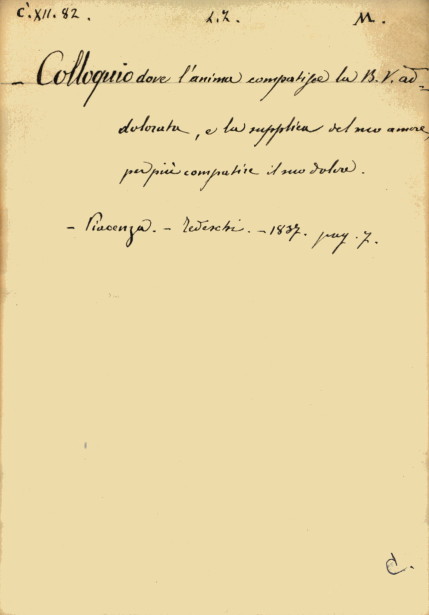 C. XII. 82. L. Z. M.
— Colloquio dove l'anima compatisce la B. V. ad=
dolorata, e la supplica del suo amore,
per più compatire il suo dolore.
— Piacenza. — Tedeschi. — 1837. pag. 7.
C.